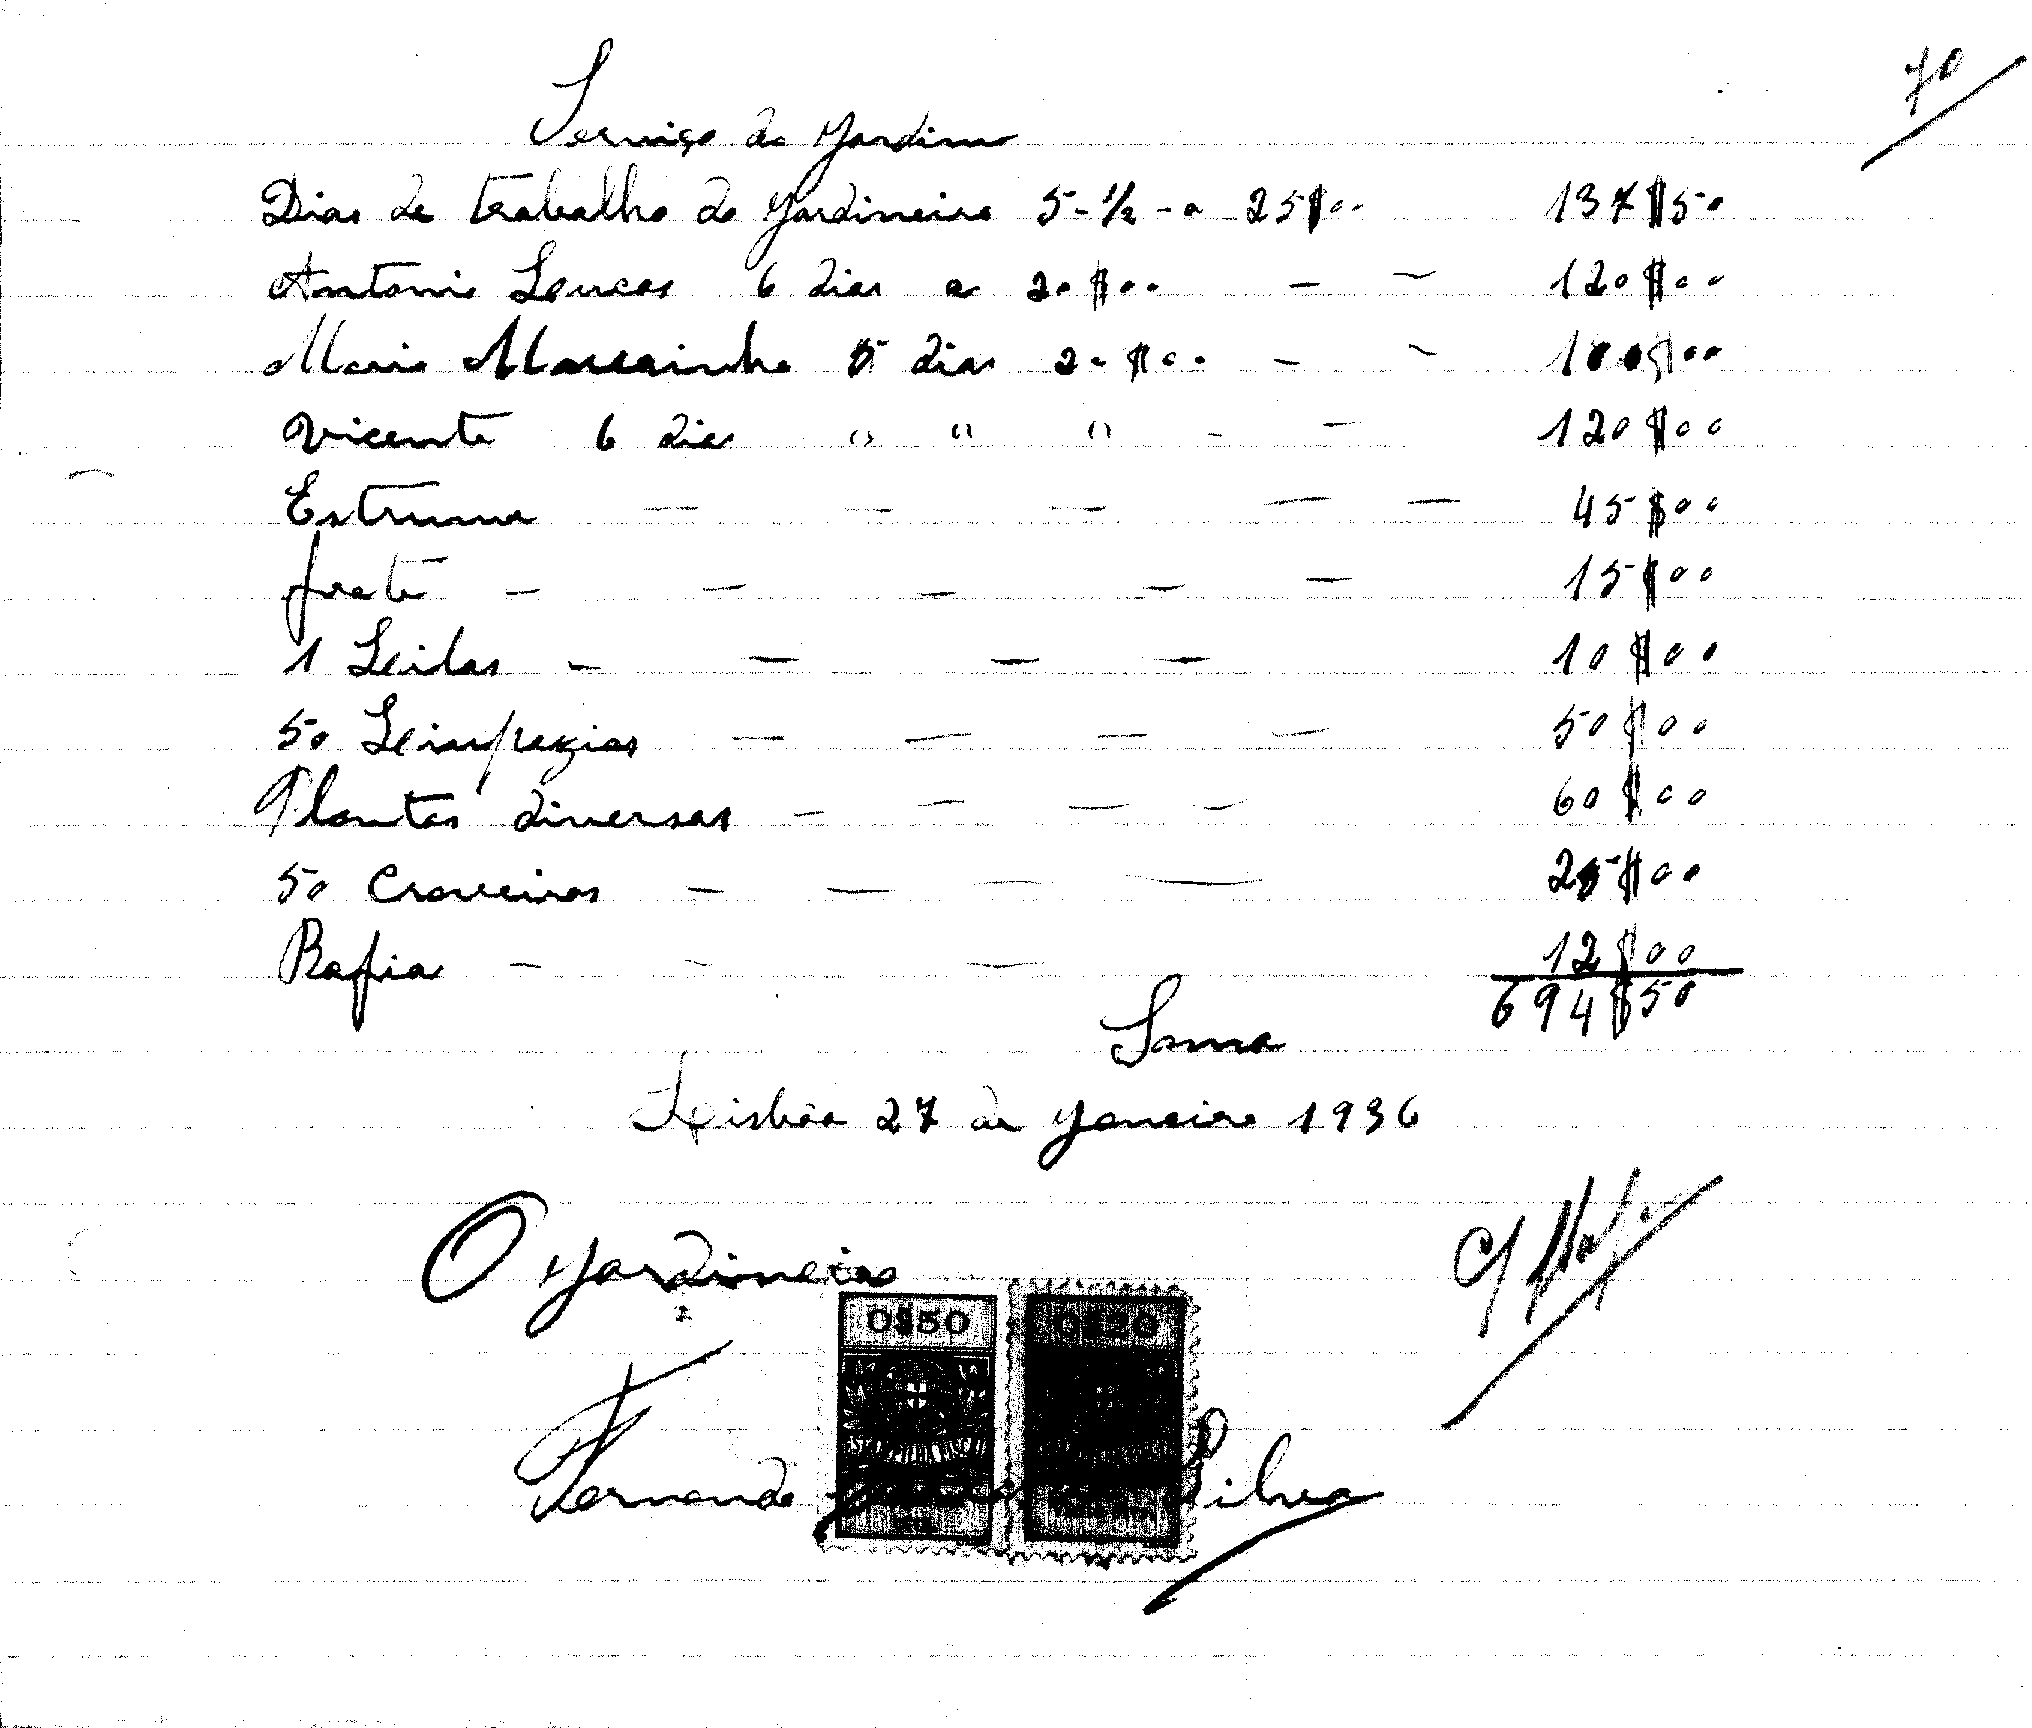 70
Serviço do Jardim
Dias de trabalho do Jardineiro 5-½-a 25$00 137$50
Antonio Leucas 6 dias a 20$00 - - 120$00
Mario 5 dias 20$00 - - 100$00
Vicente 6 dias " " " - - 120$00
Estrume - - - - - 45$00
frete - - - - - 15$00
1 Leilas - - - - 10$00
50 - - - - 50$00
Plantas diversas - - - - 60$00
50 Craveiros - - - - 25$00
Rafia - - - 12$00
694$50
Soma
Lisbôa 27 de Janeiro 1936
O Jardineiro
0$50 0$20
Fernando Silva